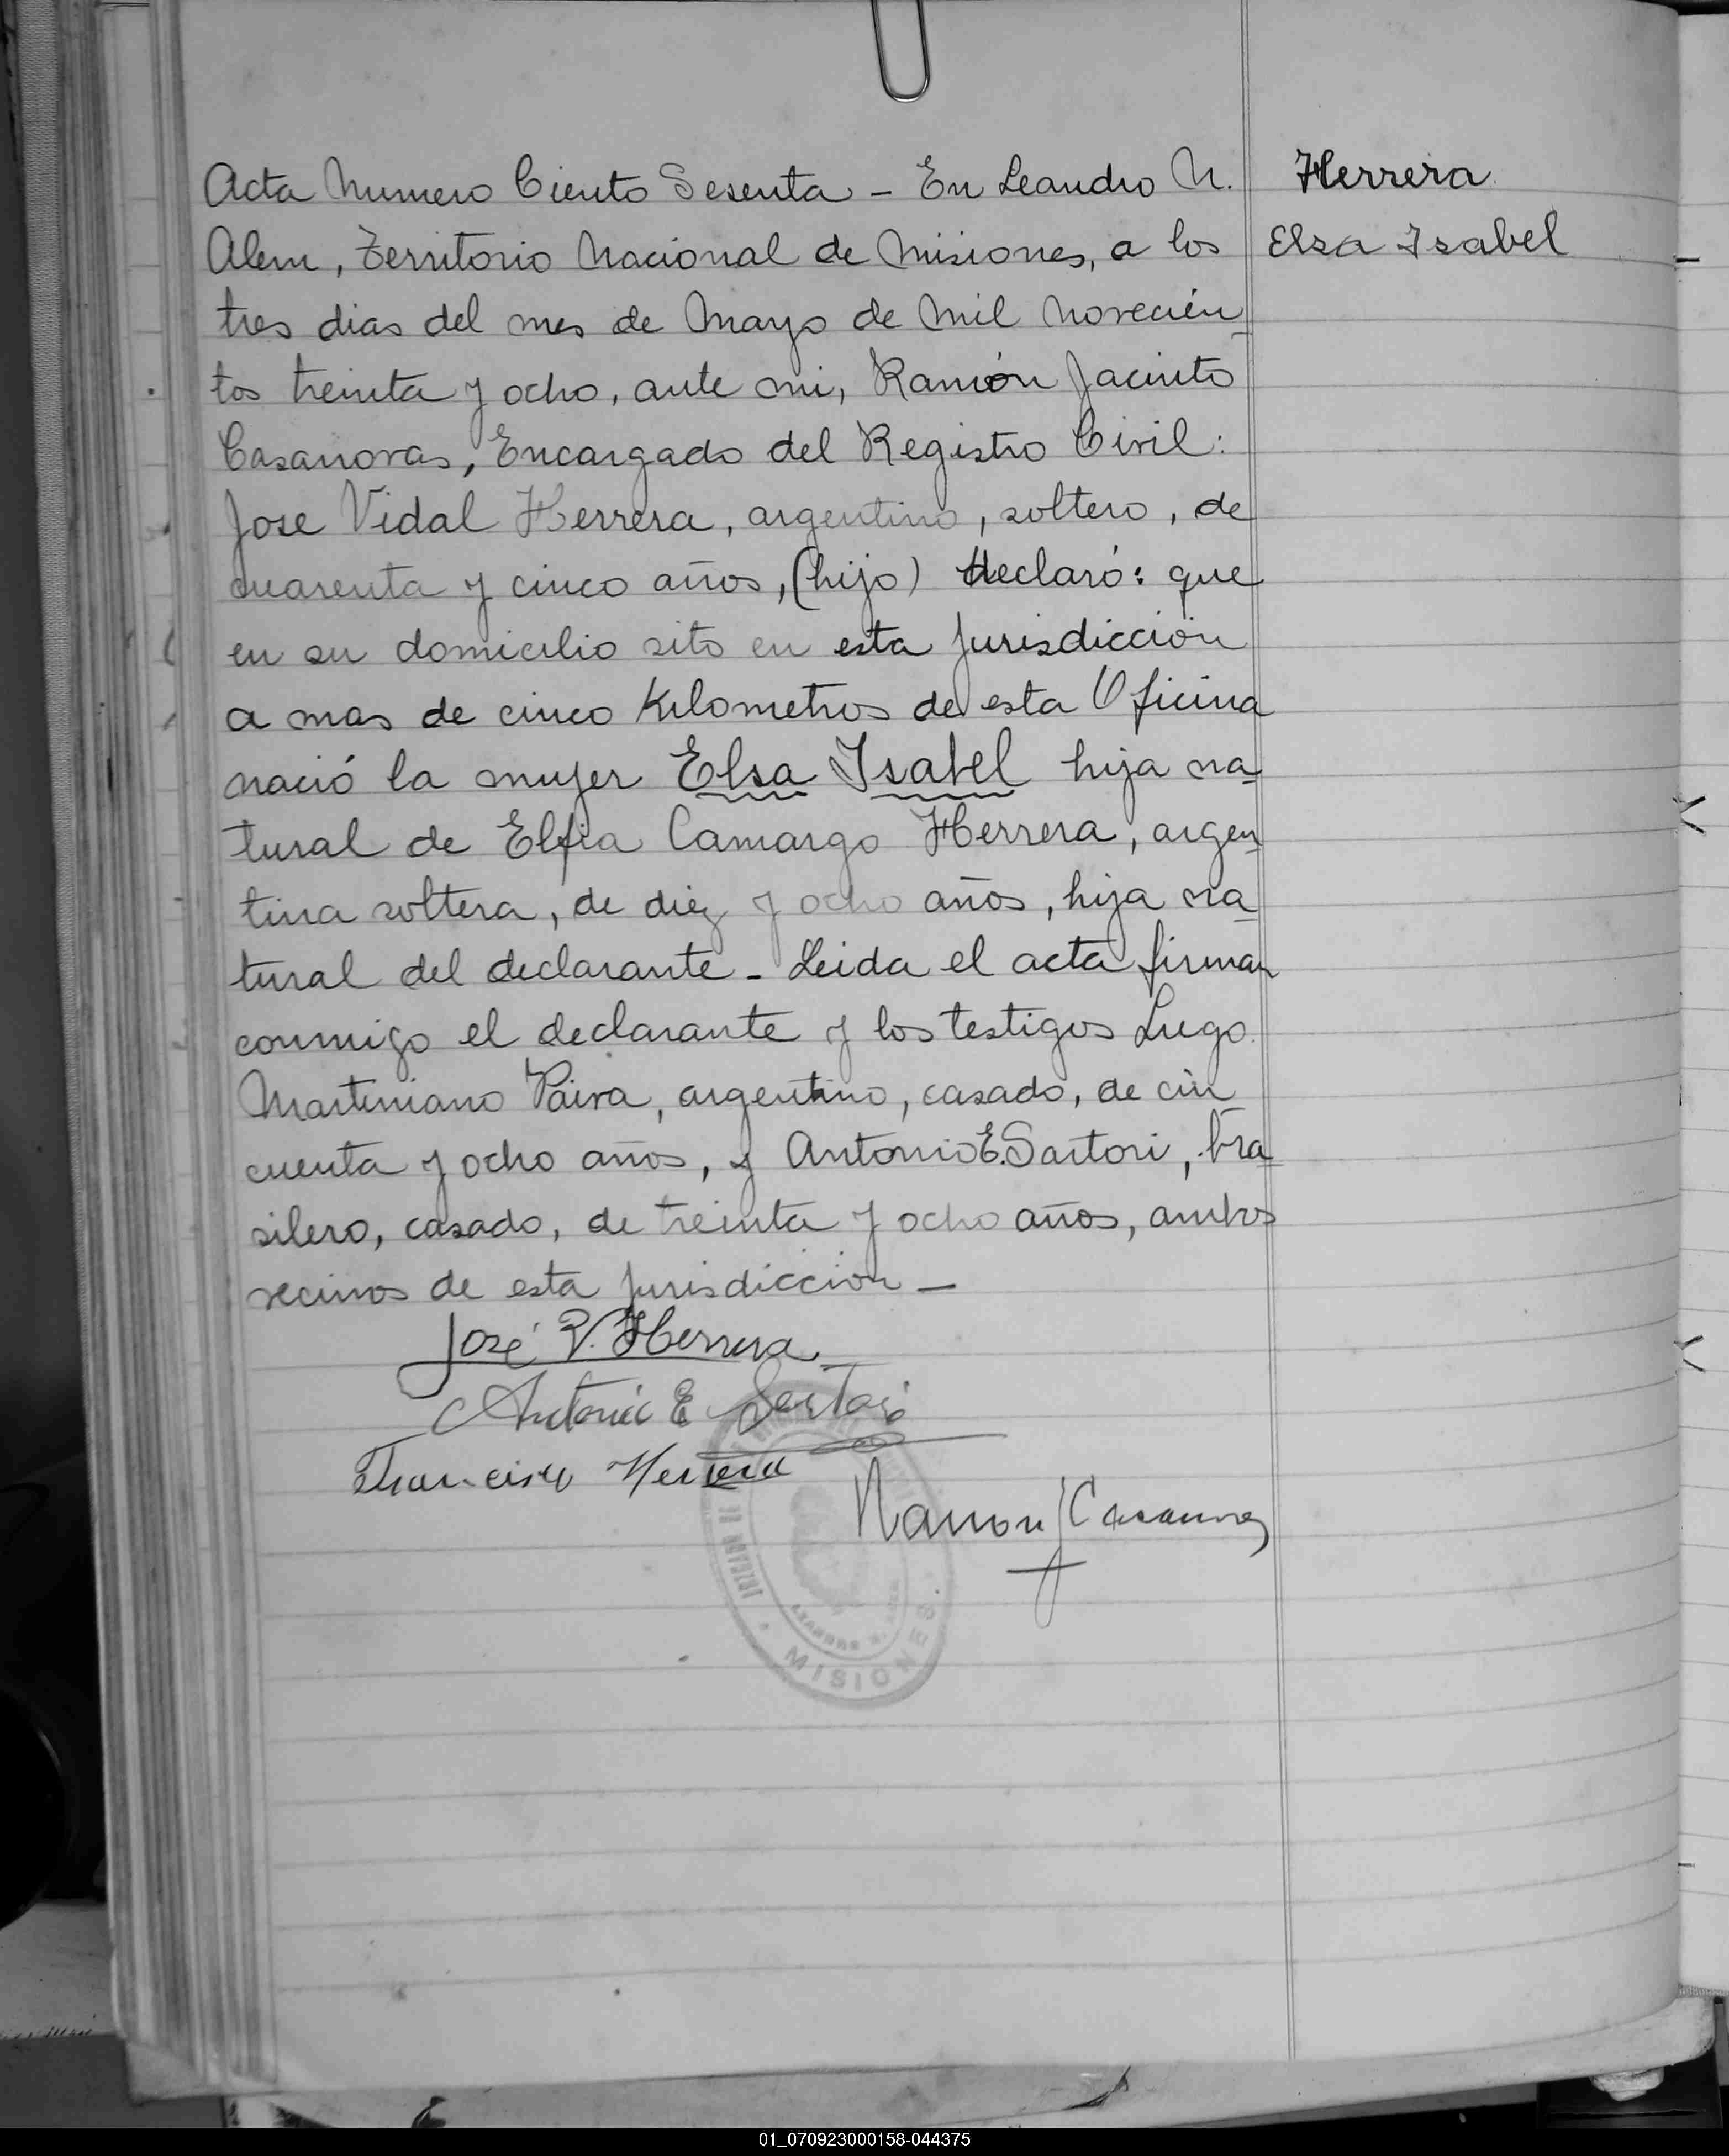 Acta Numero Ciento Sesenta - En Leandro N.
Alem, Territorio Nacional de Misiones, a los
tres dias del mes de Mayo de Mil Novecien
tos treinta y ocho, ante mi, Ramón Jacinto
Casanovas, Encargado del Registro Civil:
Jose Vidal Herrera, argentino, soltero, de
cuarenta y cinco años, (hijo) declaró: que
en su domicilio sito en esta Jurisdicción
a mas de cinco Kilometros de esta Oficina
nació la mujer Elsa Isabel hija na
tural de Elfia Camargo Herrera, argen
tina soltera, de diez y ocho años, hija na
tural del declarante - Leida el acta firman
conmigo el declarante y los testigos Lugo
Martiniano Paiva, argentino, casado, de cin
cuenta y ocho años, y Antonio E. Sartori, bra
silero, casado, de treinta y ocho años, ambos
vecinos de esta Jurisdiccion -
Herrera
Elsa Isabel
José V. Herrera
Antonio E Sartori
Francisco Herrera
Ramon J Casanovas
MISIONES
01_070923000158-044375